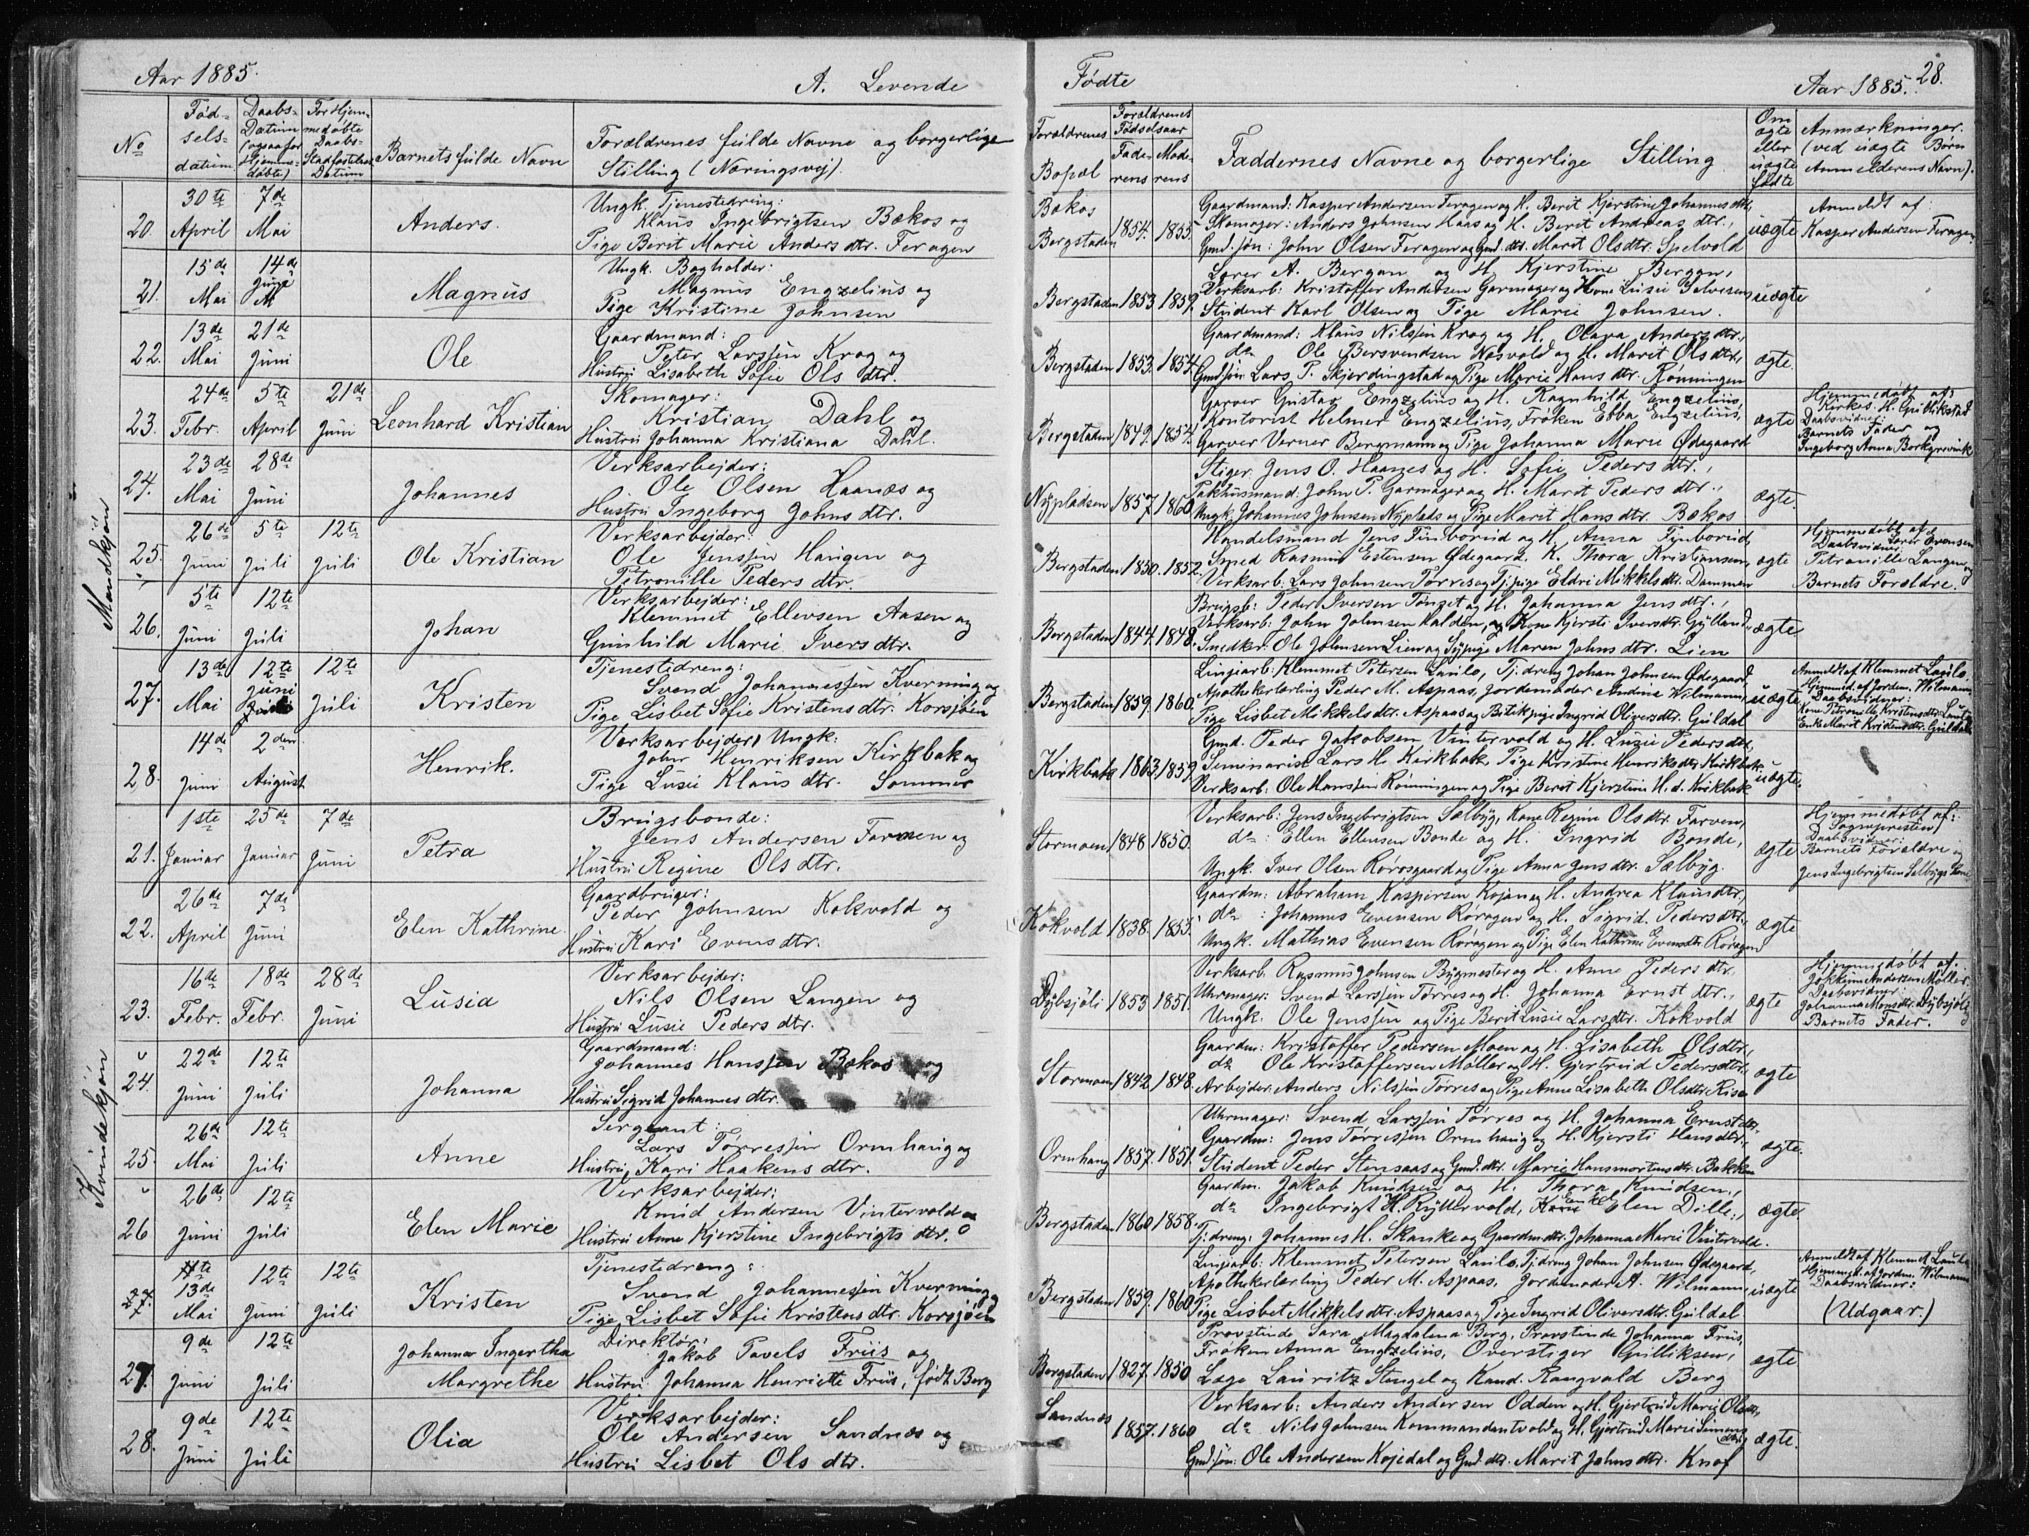 Aar 1885.
A. Levende
Födte
Aar 1885.
28.
No
Födselsdatum
Daabs-Datum (ogsaa for Hjemmedöbte)
For Hjemmedöbte Daabs-Stadfæstelses Datum
Barnets fulde Navn
Forældrenes fulde Navne og borgerlige Stilling (Næringsvej).
Forældrenes Bopæl
Forældrenes Födselsaar
Faderens
Moderens
Faddernes Navne og borgerlige Stilling
Om ægte eller uægte födte
Anmærkninger. (ved uægte Børn Anmelderens Navn).
Mandkjön
20. 30te April 7de Mai Anders.
Ungk. Tjenestedreng:
Klaus Ingebrigtsen Bakos og
Pige Berit Marie Anders dtr. Feragen
Bakos
Bergstaden 1854. 1855.
Gaardmand: Kasper Andersen Feragen og H. Berit Kjerstine Johannes dtr,
Skomager: Anders Johnsen Haas og H. Berit Andreas dtr.,
Gmd. søn: John Olsen Feragen og Gmd. dtr. Marit Ols dtr. Spelvold
uægte
Anmeldt af:
Kasper Andersen Feragen
21. 15de Mai 14de Juni Magnus
Ungk. Bogholder:
Magnus Engzelius og
Pige Kristine Johnsen
Bergstaden 1853. 1859.
Lærer A. Bergan og H. Kjerstine Bergan,
Verksarb: Kristoffer Andersen Garmager og Kone Lusie
Student Karl Olsen og Pige Marie Johnsen.
uægte
22. 13de Mai 21de Juni Ole
Gaardmand:
Peter Larssen Krog og
Hustru Lisabeth Sofie Ols dtr.
Bergstaden 1853. 1854.
Gaardmand: Klaus Nilssen Krog og H. Olava Anders dtr.,
do Ole Bersvendsen Næsvold og H. Marit Ols dtr,
Gmd søn Lars P. Skjerdingstad og Pige Marie Hans dtr. Rønningen
ægte.
23. 24de Febr. 5te April 21de Juni Leonhard Kristian
Skomager:
Kristian Dahl og
Hustru Johanna Kristiana Dahl.
Bergstaden 1849. 1854.
Garver Gustav Engzelius og H. Ragnhild Engzelius,
Kontorist Helmer Engzelius, Fröken Ebba Engzelius,
Garver Verner Bergmann og Pige Johanna Marie Ødegaard
ægte
Hjemmedöbt af:
Kirkes. H. Gullikstad
Daabsvidner:
Barnets Fader og
Ingeborg Anna Borkgrevink
24. 23de Mai 28de Juni Johannes
Verksarbejder:
Ole Olsen Haanæs og
Hustru Ingeborg Johns dtr.
Nypladsen 1857. 1860.
Stiger Jens O. Haanæs og H. Sofie Peders dtr.,
Pakhusmand: John P. Garmager og H. Marit Peders dtr.,
Ungk. Johannes Johnsen Nyplads og Pige Marit Hans dtr. Bakos
ægte.
25. 26de Juni 5te Juli 12te Juli Ole Kristian
Verksarbejder:
Ole Jenssen Haugen og
Petronille Peders dtr.
Bergstaden 1850. 1852.
Handelsmand Jens Finborud og H. Anna Finborud,
Smed Rasmus Estensen Ødegaard, K. Thora Kristiansen,
Verksarb: Lars Johnsen Tørres og Tj. pige Eldri Mikkels dtr. Dammen
ægte
Hjemmedöbt af
Lærer Evensen
Daabsvidner:
Petronille Langen og
Barnets Forældre.
26. 5te Juni 12te Juli Johan
Verksarbejder:
Klemmet Ellevsen Aasen og
Gunhild Marie Ivers dtr.
Bergstaden 1844. 1848.
Brugsb: Peder Iversen Tønset og H. Johanna Jens dtr.,
Verksarb: John Johnsen Kalden, og Kone Kjersti Ivers dtr.
Snedker: Ole Johnsen Lien og Sypige Maren Johns dtr. Lien
ægte
27. 13de Mai 12te Juni 12te Juli Kristen
Tjenestedreng:
Svend Johannessen Kverning og
Pige Lisbet Sofie Kristens dtr. Korsjøen
Bergstaden 1859. 1860.
Linjearb: Klemmet Petersen Laulo, Tj. dreng Johan Johnsen Ødegaard,
Apothekerlærling Peder M. Aspaas, Jordemoder Andine Wilmann,
Pige Lisbet Mikkels dtr. Aspaas og Butikpige Ingrid Olivers dtr. Guldal
uægte
Anmeldt af Klemmet Laulo.
Hjemmd. af Jordem. Wilmann
Daabsvidner:
Kone Petronille Kristens dtr. Laulo
Enke Marit Kristens dtr. Guldal
28. 14de Juni 2den August Henrik.
Verksarbejder, Ungk:
John Henriksen Kirkbak og
Pige Lusie Klaus dtr. Sommer
Kvikbak 1863. 1859.
Gmd. Peder Jakobsen Vintervold og H. Lusie Peders dtr,
Seminarist Lars H. Kirkbak, Pige Kristine Henriks dtr. Kirkbak
Verksarb: Ole Hanssen Rønningen og Pige Berit Kjerstine H. d. Kvikbak
uægte.
Kvindekjön
21. 1ste Januar 25de Januar 7de Juni Petra
Brugsbonde:
Jens Andersen Farmen og
Hustru Regine Ols dtr.
Stormoen 1848 1850.
Verksarb: Jens Ingebrigtsen Sælbyg, Kone Regine Ols dtr. Farven,
do: Ellen Ellensen Bonde og H. Ingrid Bonde,
Ungk. Iver Olsen Rørosgaard og Pige Anna Jens dtr. Sælbyg.
ægte
Hjemmedöbt af:
Sognepresten
Daabsvidner:
Barnets Forældre og
Jens Ingebrigtsen Selbygs Kone
22. 26de April 7de Juni Elen Kathrine.
Gaardbruger:
Peder Johnsen Kokvold og
Hustru Kari Evens dtr.
Kokvold 1838. 1853.
Gaardm: Abraham Kaspersen Kojan og H. Andrea Klaus dtr,
do: Johannes Evensen Røragen og H. Sigrid Peders dtr.,
Ungk. Mathias Evensen Røragen og Pige Elen Kathrine Evens dtr. Røragen
ægte
23. 16de Febr. 18de Febr. 28de Juni Lusia
Verksarbejder:
Nils Olsen Langen og
Hustru Lusie Peders dtr.
Dybsjöli 1853 1851.
Verksarb. Rasmus Johnsen Bygmester og H. Anne Peders dtr.
Uhrmager: Svend Larssen Tørres og H. Johanna Ernst dtr.,
Ungk: Ole Jenssen og Pige Berit Lusie Lars dtr. Kokvold
ægte
Hjemmedöbt af:
Jokkum Andersen Møller
Daabsvidner:
Johanna Mons dtr. Dybsjöli
Barnets Fader.
24. 22de Juni 12te Juli Johanna
Gaardmand:
Johannes Hanssen Bakos og
Hustru Sigrid Johannes dtr.
Stormoen 1842. 1848.
Gaardm: Kristoffer Pedersen Moen og H. Lisabeth Ols dtr.,
do Ole Kristoffersen Møller og H. Gjertrud Peders dtr.
Arbejder: Anders Nilssen Tørres og Pige Anne Lisabeth Ols dtr. Risa
ægte
25. 26de Mai 12te Juli Anne
Sergeant:
Lars Tørressen Ormhaug og
Hustru Kari Haakens dtr.
Ormhaug 1857. 1851.
Uhrmager: Svend Larssen Tørres og H. Johanna Ernst dtr.
Gaardm: Jens Tørressen Ormhaug og H. Kjersti Hans dtr.,
Student Peder Stensaas og Gmd. dtr. Marie Hansmortens dtr. Bakken
ægte.
26 26de Juni 12te Juli Elen Marie
Verksarbejder:
Knud Andersen Vintervold og
Hustru Anne Kjerstine Ingebrigts dtr.
Bergstaden 1860 1858.
Gaardm. Jakob Knudsen og H. Thora Knudsen,
do Ingebrigt H. Ryttervold, Enke Elen Dille,
Tj. dreng: Johannes H. Skanke og Gaardm dtr. Johanna Marie Vintervold.
ægte
27. 13de Mai 12te Juni 12te Juli Kristen
Tjenestedreng:
Svend Johannessen Kverning og
Pige Lisbet Sofie Kristens dtr. Korsjøen
Bergstaden 1859. 1860
Linjearb: Klemmet Petersen Laulo, Tj. dreng Johan Johnsen Ødegaard,
Apothekerlærling Peder M. Aspaas, Jordemoder A. Wilmann,
Pige Lisbet Mikkels dtr. Aspaas og Pige Ingrid Olivers dtr. Guldal
uægte
Anmeldt af Klemmet Laulo
Hjemmd. af Jordm. Wilmann
Daabsvidner:
(Udgaar.)
27. 9de Juni 12te Juli Johanna Ingertha Margrethe
Direktör:
Jakob Pavels Friis og
Hustru Johanna Henriette Friis, födt Berg
Bergstaden 1827. 1850
Provstinde Sara Magdalena Berg, Provstinde Johanna Friis,
Fröken Anna Engzelius, Overstiger Gulliksen,
Læge Lauritz Stengel og Kand. Rangvald Berg
ægte
28. 9de Juni 12te Juli Olia
Verksarbejder:
Ole Andersen Sandnæs og
Hustru Lisbet Ols dtr.
Sandnæs 1857. 1860
Verksarb: Anders Andersen Odden og H. Gjertrud Marie Ols dtr,
do Nils Johnsen Kommandantvold og H. Gjertrud Marie Simens dtr,
Gmd. søn: Ole Andersen Kojedal og Gmd. dtr. Marit Johns dtr. Knof
ægte.